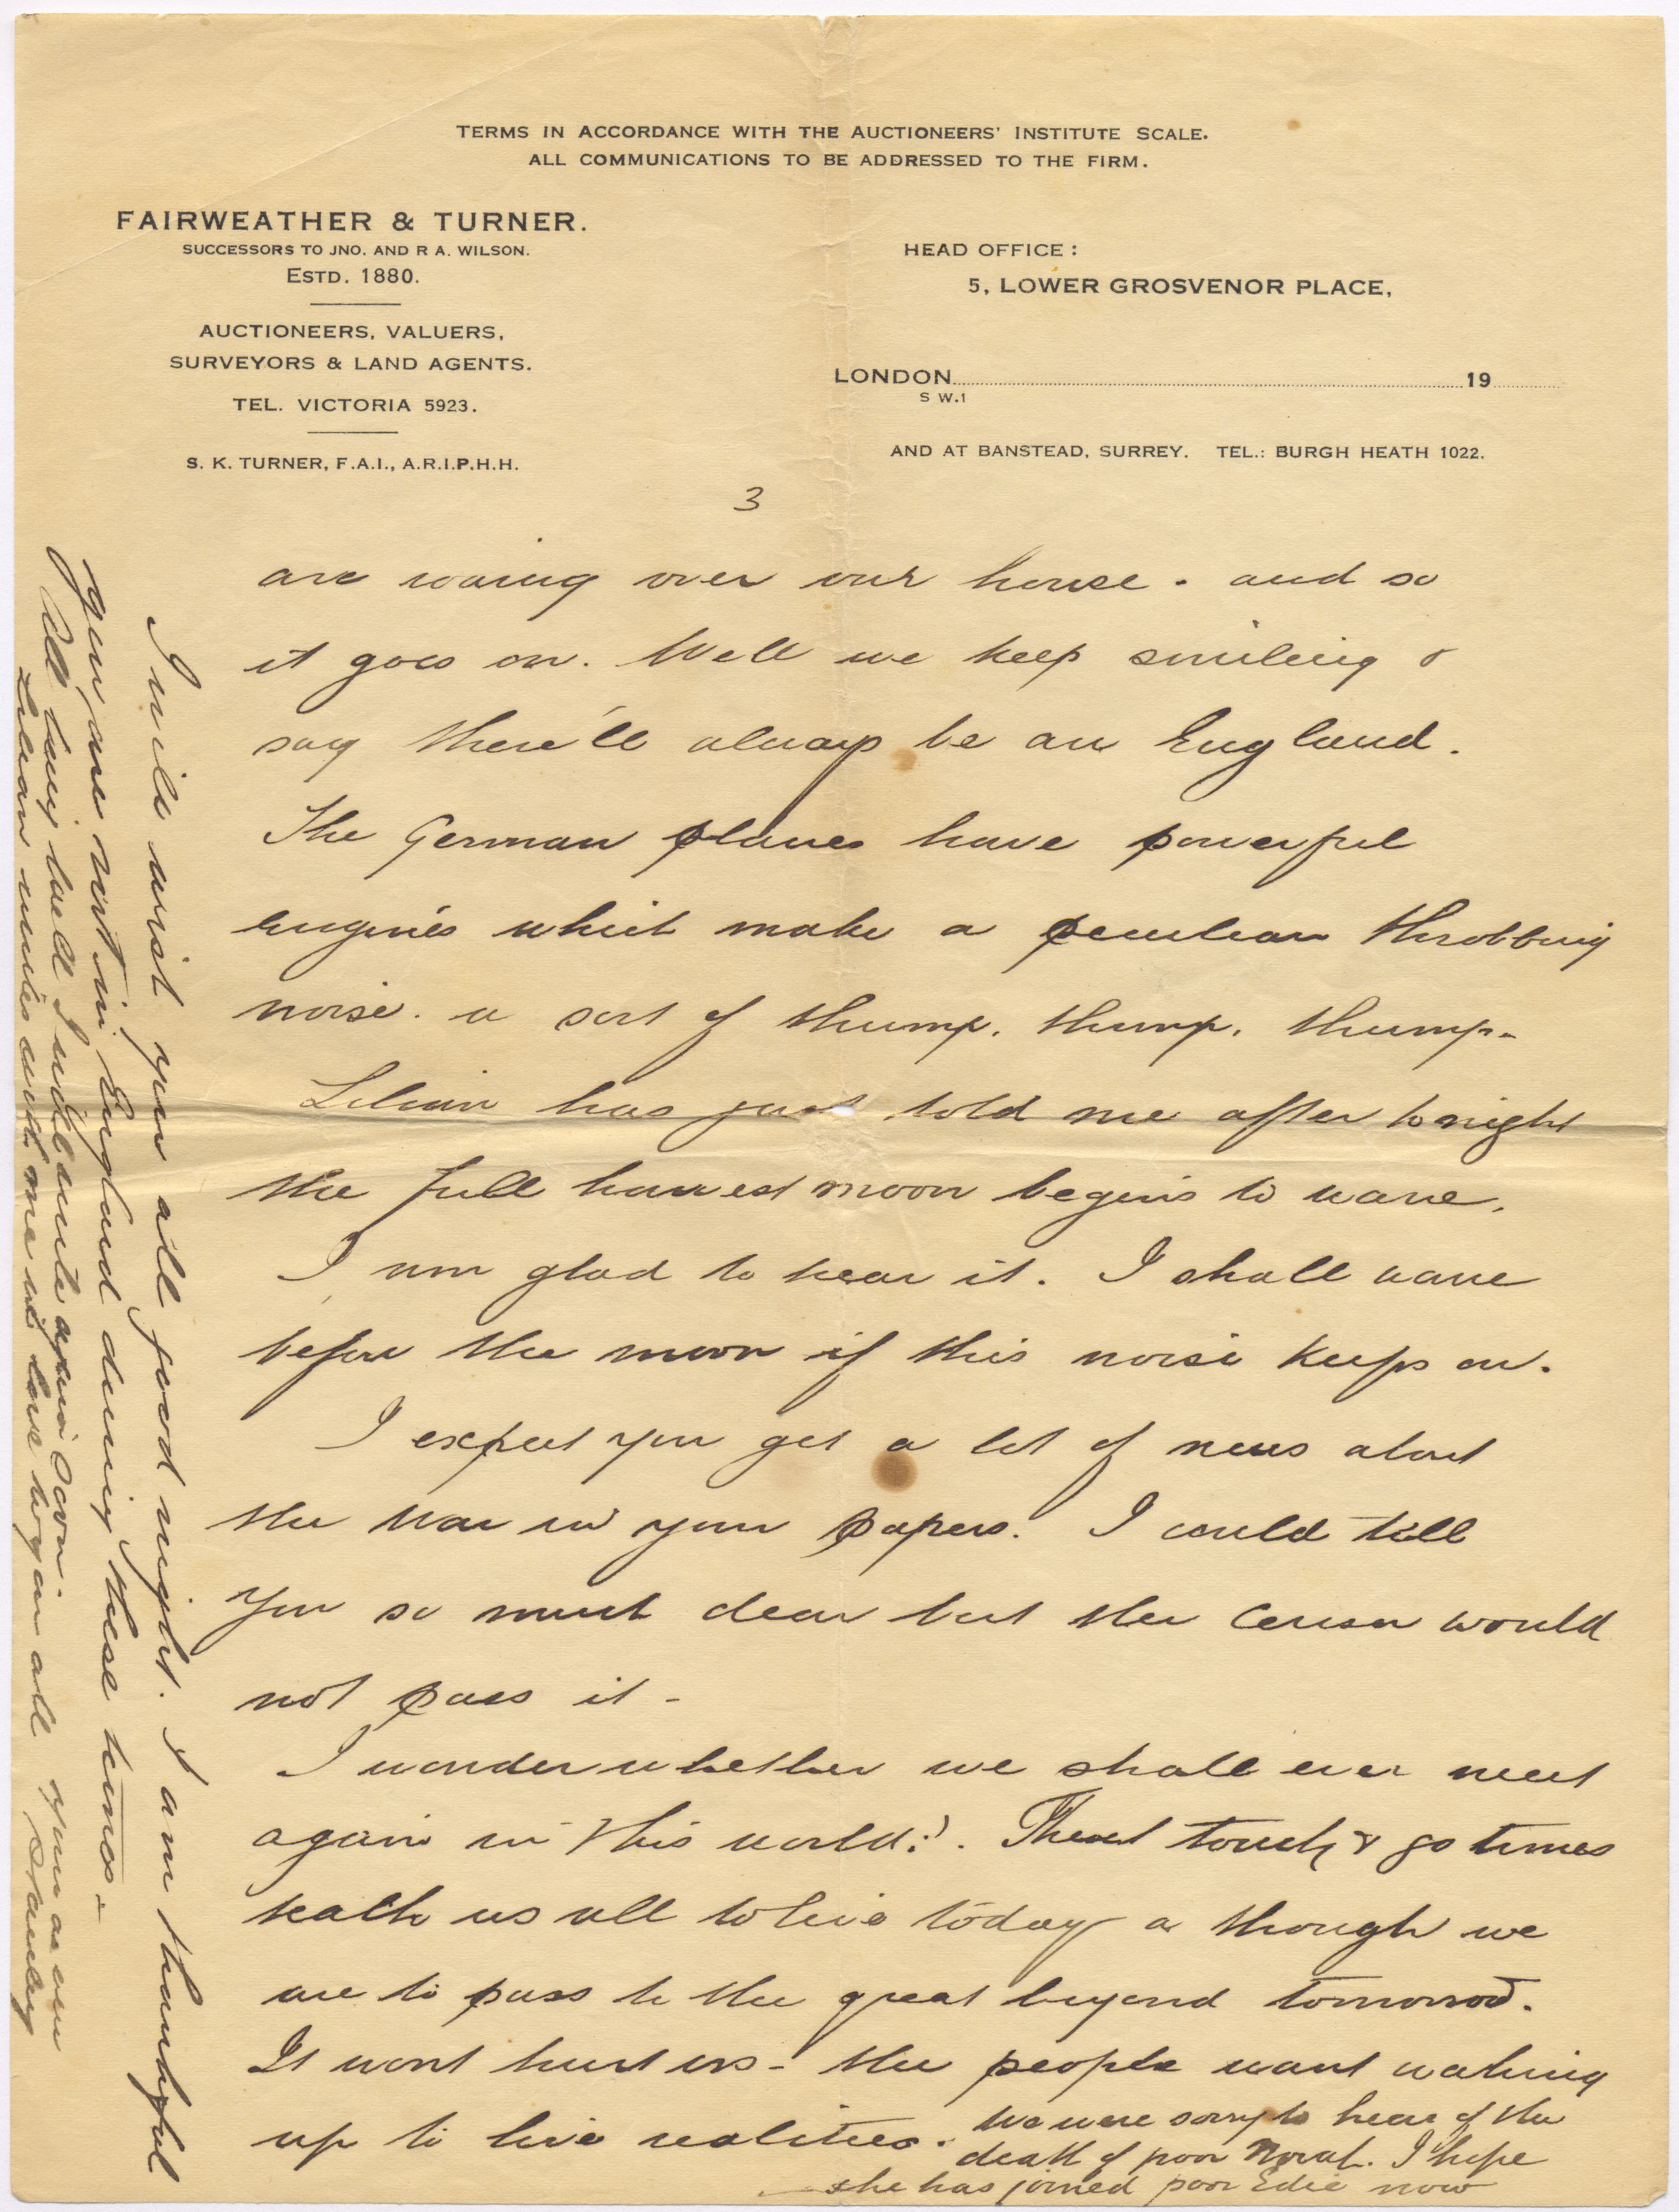 TERMS IN ACCORDANCE WITH THE AUCTIONEERS' INSTITUTE SCALE.
ALL COMMUNICATIONS TO BE ADDRESSED TO THE FIRM.
FAIRWEATHER & TURNER.
SUCCESSORS TO JNO. AND R A. WILSON.
ESTD. 1880.
AUCTIONEERS, VALUERS,
SURVEYORS & LAND AGENTS.
TEL. VICTORIA 5923.
S. K. TURNER, F.A.I., A.R.I.P.H.H.
HEAD OFFICE:
5, LOWER GROSVENOR PLACE,
LONDON 19
S W.1
AND AT BANSTEAD, SURREY. TEL.: BURGH HEATH 1022.
3
are roaring over our house. and so
it goes on. Well we keep smiling &
say there'll always be an England.
The German planes have powerful
engines which make a peculiar throbbing
noise. a sort of thump. thump. thump-
Lilian has just told me after tonight
the full harvest moon begins to wane.
I am glad to hear it. I shall wane
before the moon if this noise keeps on.
I expect you get a lot of news about
the War in your papers. I could tell
you so much dear but the Censor would
not pass it -
I wonder whether we shall ever meet
again in this world?. These touch & go times
teach us all to live today as though we
are to pass to the great beyond tomorrow.
It wont hurt us - the people want waking
up to live realities. We were sorry to hear of the
death of poor Norah. I hope
she has joined poor Edie now
I will wish you all good night. I am thankful
you are not in England during these times -
All being well I will write again soon.
Lilian unites with me in love to you all
Yours as ever
Stanley